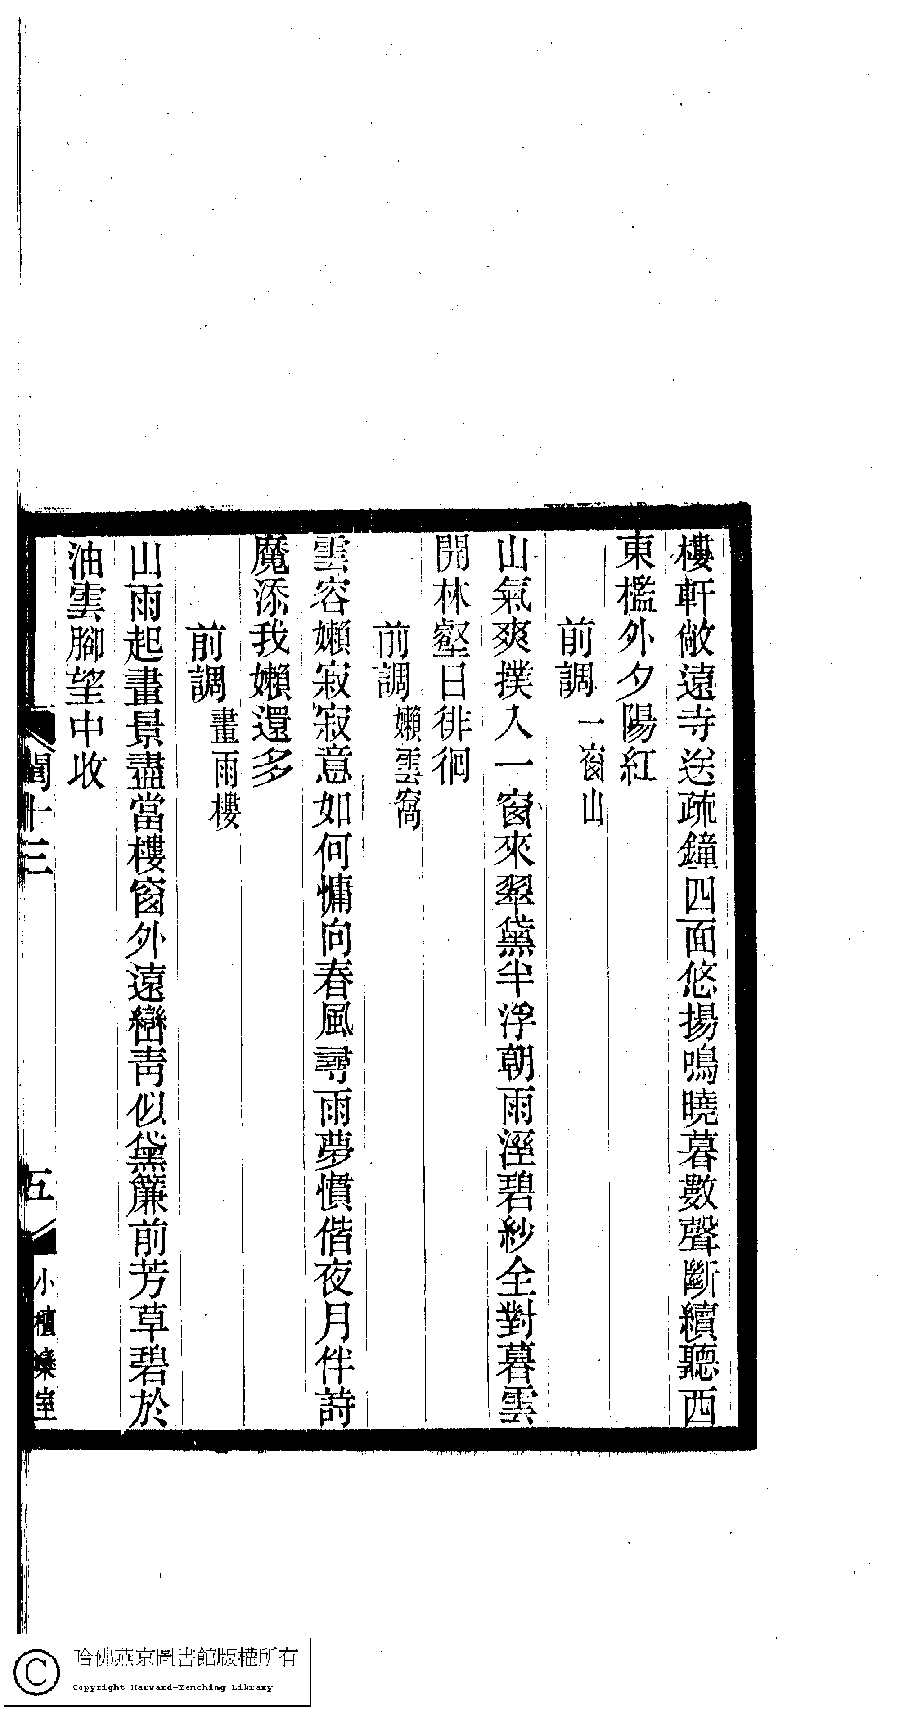 樓軒敞遠寺送疏鐘四面悠揚鳴曉暮數聲斷續聽西
東檻外夕陽紅
前調 一窗山
山氣爽撲入一窗來翠黛半浮朝雨溼碧紗全對暮雲
開林壑日徘徊
前調 嬾雲窩
雲容嬾寂寂意如何慵向春風尋雨夢慣偕夜月伴詩
魔添我嬾還多
前調 畫雨樓
山雨起畫景盡當樓窗外遠巒靑似黛簾前芳草碧於
油雲腳望中收
閨十三
五
小檀欒室
哈佛燕京圖書館版權所有
Copyright Harvard-Yenching Library